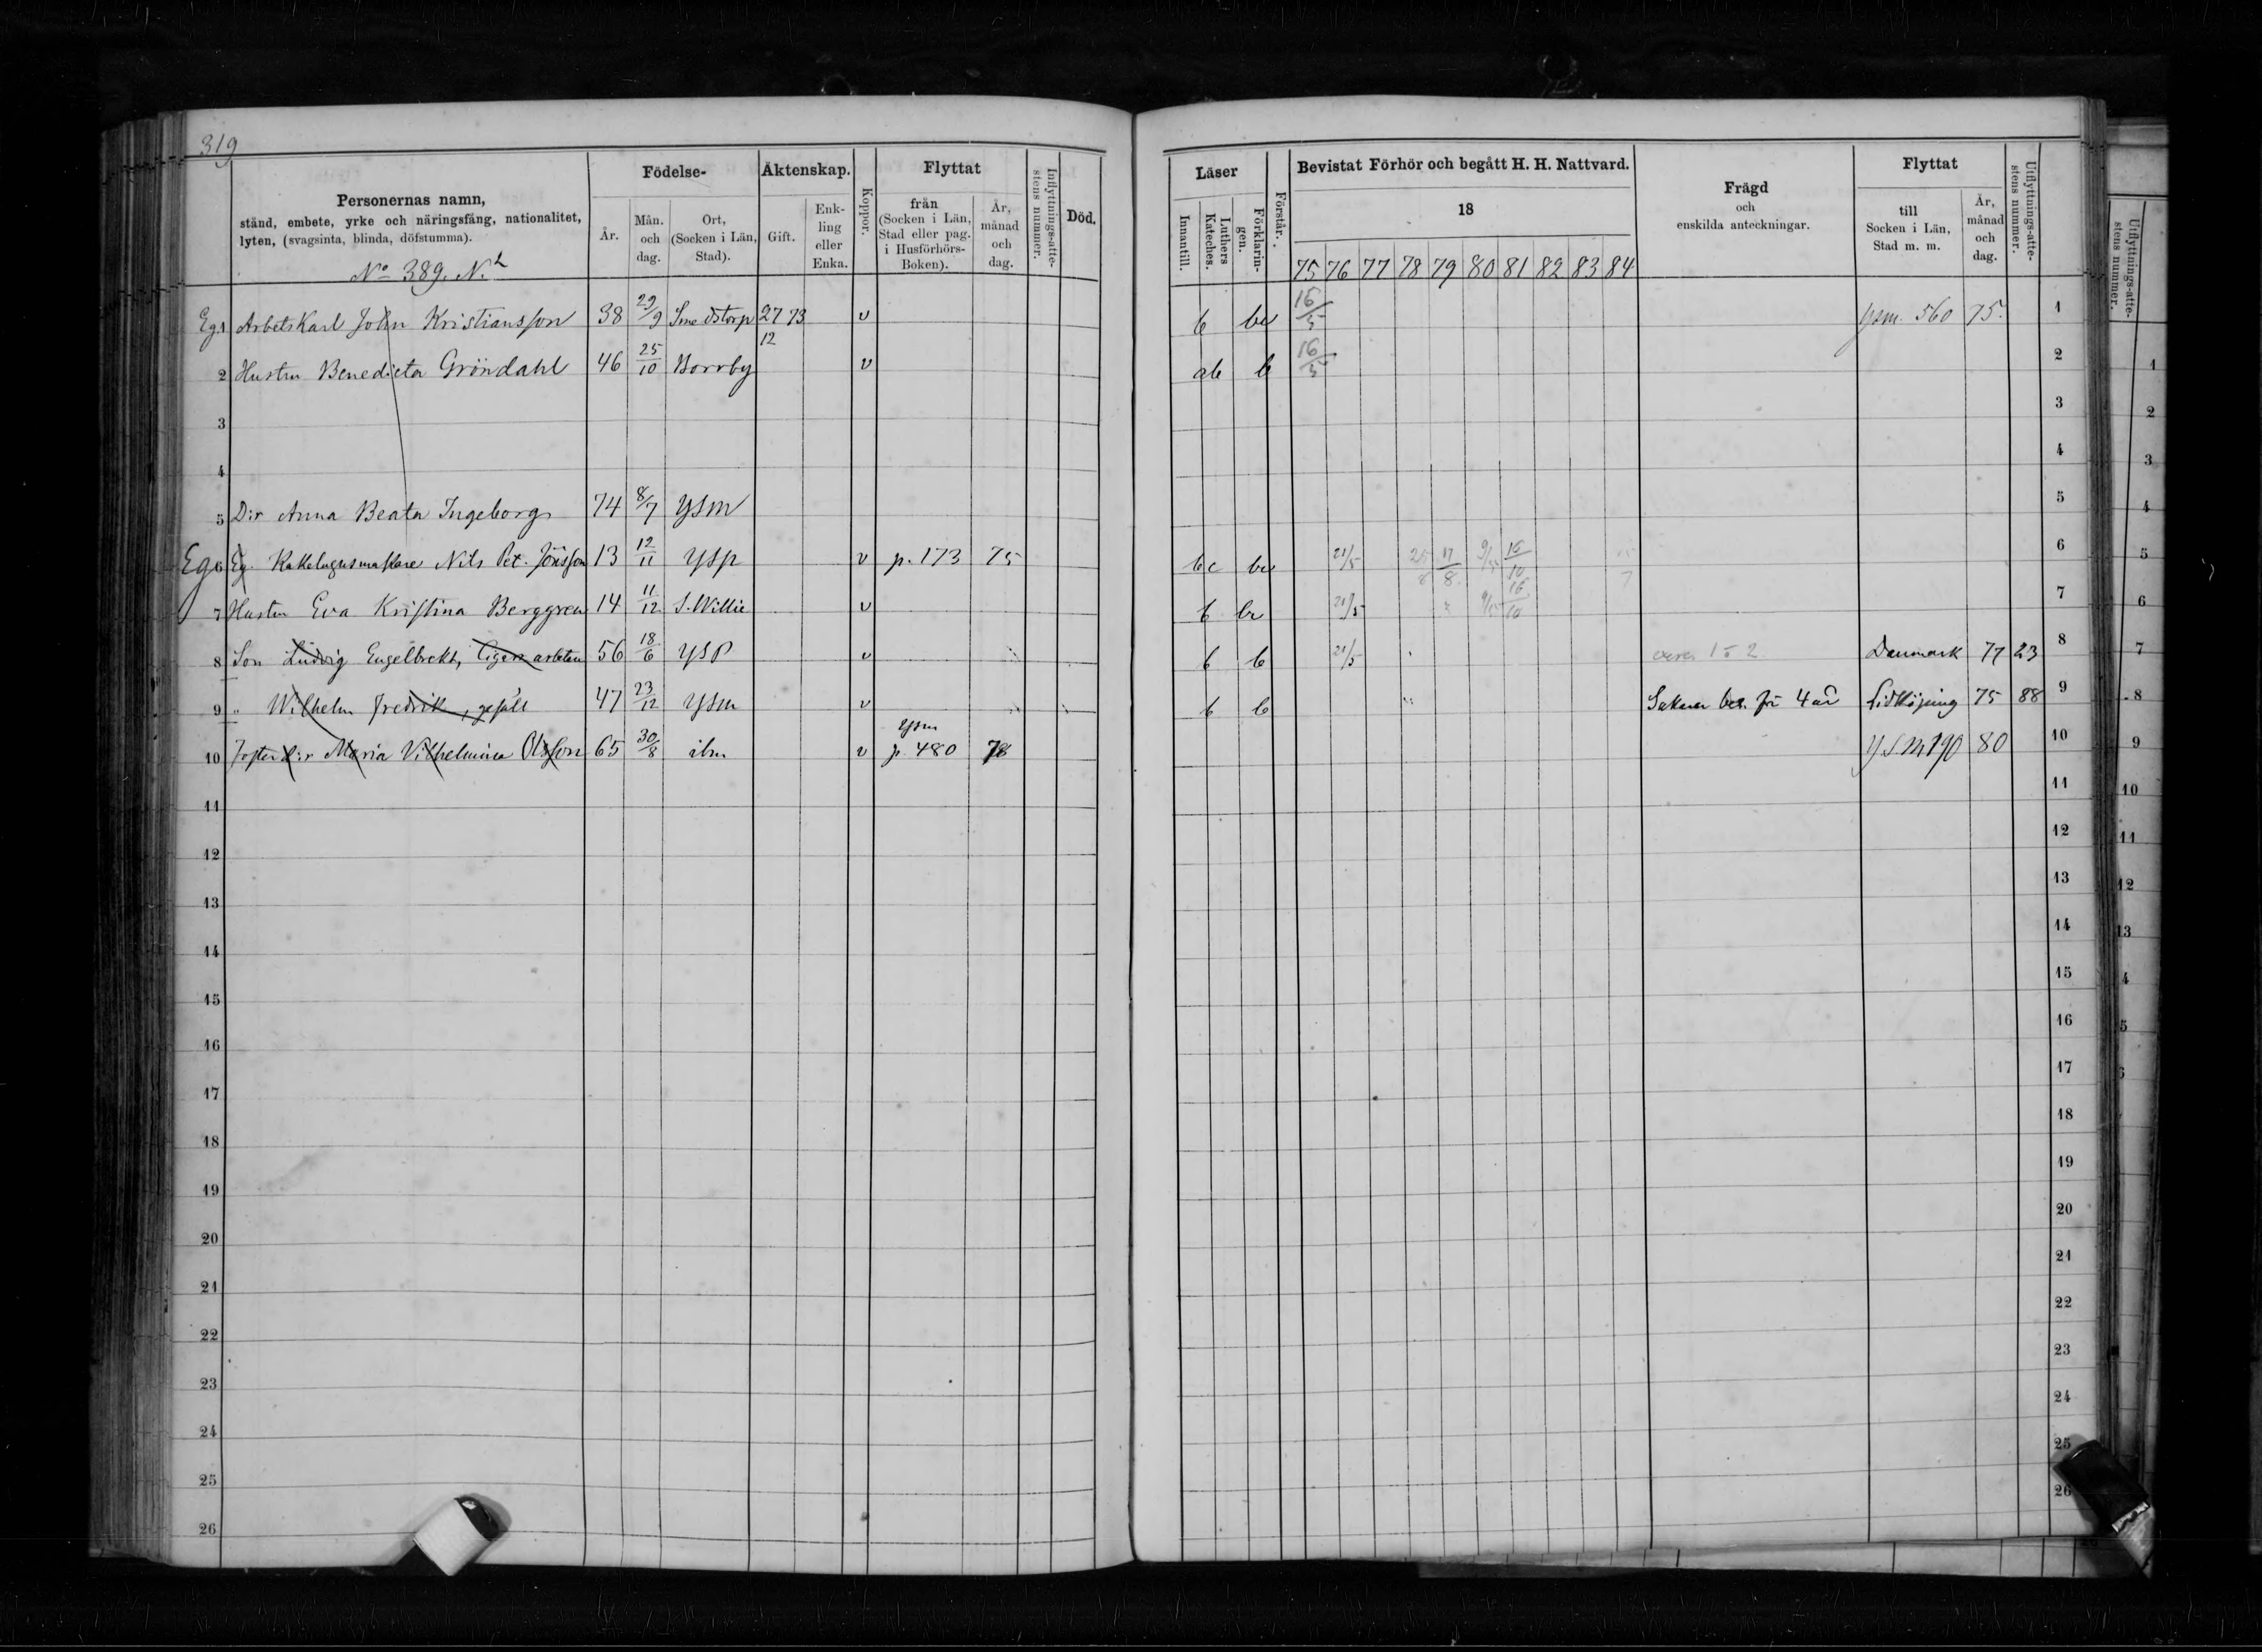 319
Personernas namn,
stånd, embete, yrke och näringsfång, nationalitet,
lyten, (svagsinta, blinda, döfstumma).
No 389. N.
Födelse-
År.
Mån. och dag.
Ort, (Socken i Län, Stad).
Äktenskap.
Gift.
Enkling eller Enka.
Koppor.
Flyttat
från (Socken i Län, Stad eller pag. i Husförhörs-Boken).
År, månad och dag.
Inflyttnings-attestens nummer.
Död.
Läser
Innantill.
Luthers Kateches.
Förklaringen.
Förstår.
Bevistat Förhör och begått H. H. Nattvard.
18
75 76 77 78 79 80 81 82 83 84
Frägd
och
enskilda anteckningar.
Flyttat
till
Socken i Län,
Stad m. m.
År, månad och dag.
Utflyttnings-attestens nummer.
Eg. 1 ArbetsKarl John Kristiansson 38 29/9 Smedstorp 27/12 73 v b 16/5 ysm. 560 75. 1
2 Hustru Benedicta Gröndahl 46 25/10 Borrby v ab b 16/5 2
3 3
4 4
5 D:r Anna Beata Ingeborg 74 8/7 YSM 5
Eg. 6 Eg. Kakelugnsmakare Nils Pet. Jönsson 13 12/11 YSP v p. 173 75 bc 21/5 17/8 9/5 16/10 6
7 Hustru Eva Kristina Berggren 14 11/12 S. Willie v b 21/5 9/5 16/10 7
8 Son Ludvig Engelbrekt, Cigarrarbetare 56 18/6 YSP v b b 21/5 Danmark 77 23 8
9 " Wilhelm Fredrik, gesäll 47 23/12 YSM v b b Saknar bet. för 4 år Lidköping 75 88 9
10 Fosterd:r Maria Vilhelmina Olsson 65 30/8 ibm v ysm p. 480 78 YSM 190 80 10
11 11
12 12
13 13
14 14
15 15
16 16
17 17
18 18
19 19
20 20
21 21
22 22
23 23
24 24
25 25
26 26
Utflyttnings-attestens nummer.
1
2
3
4
5
6
7
8
9
10
11
12
13